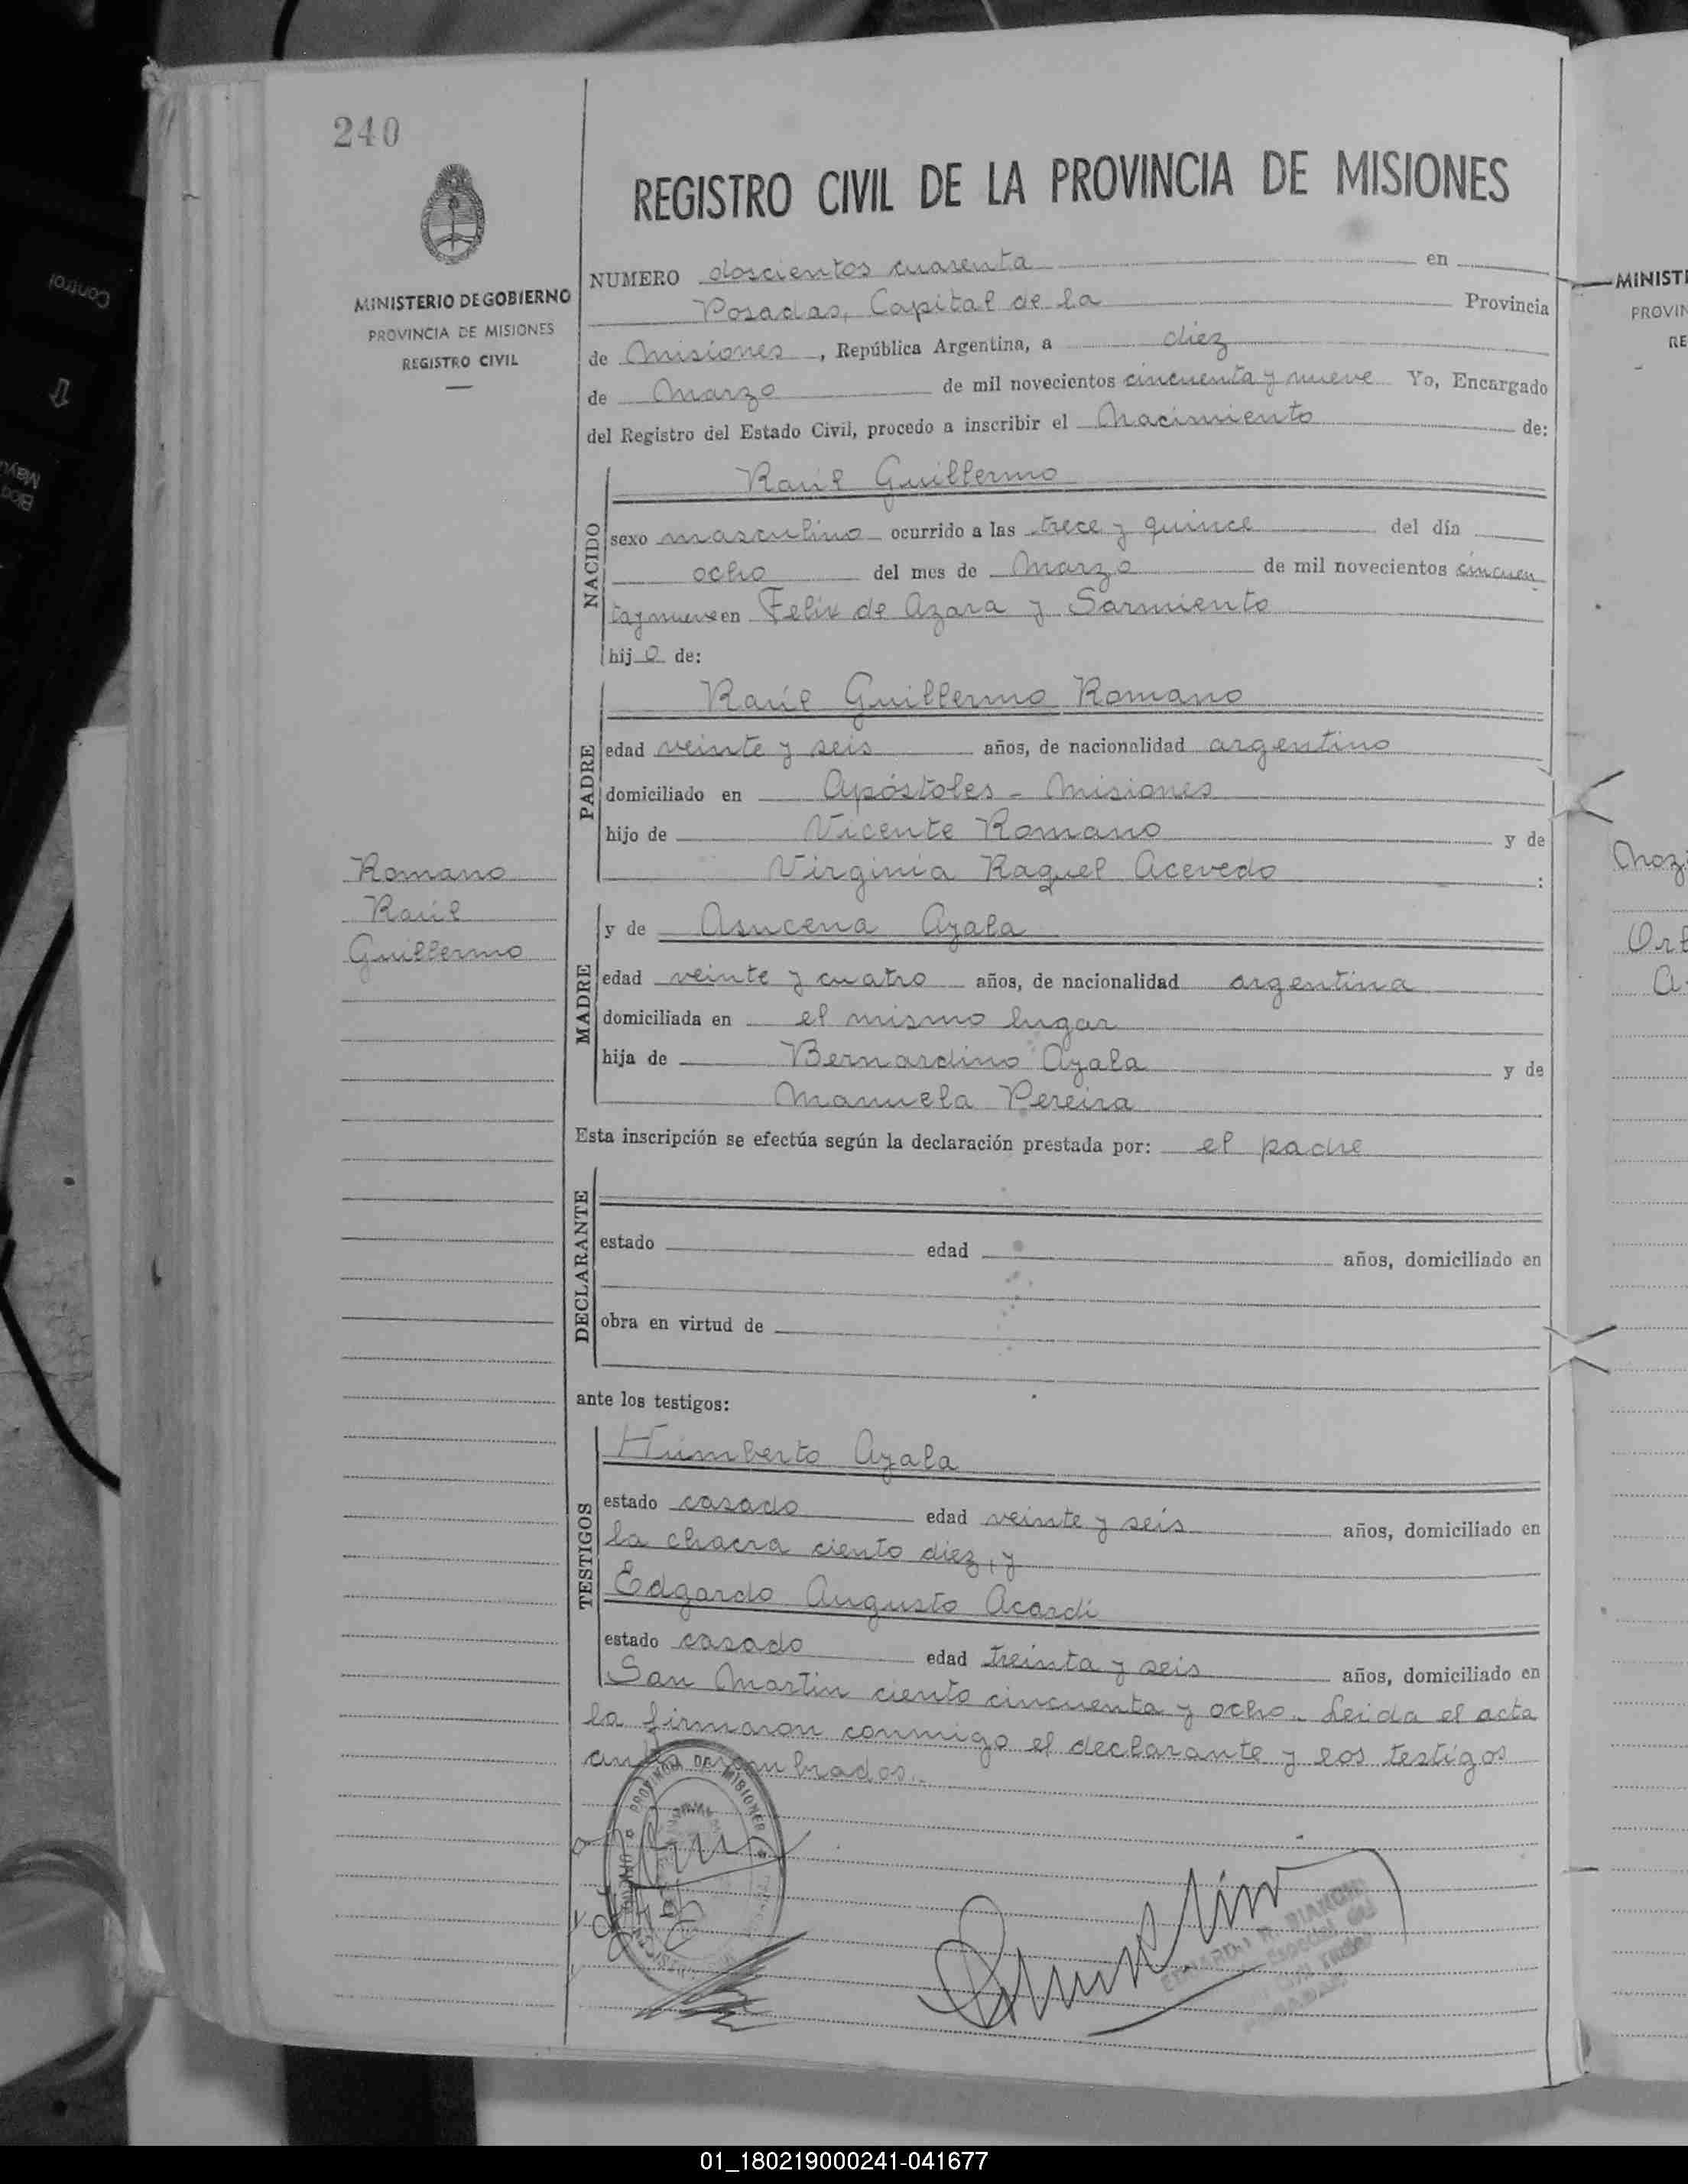 240
REGISTRO CIVIL DE LA PROVINCIA DE MISIONES
MINISTERIO DE GOBIERNO
PROVINCIA DE MISIONES
REGISTRO CIVIL
NUMERO doscientos cuarenta en
Posadas, Capital de la Provincia
de Misiones, República Argentina, a diez
de Marzo de mil novecientos cincuenta y nueve Yo, Encargado
del Registro del Estado Civil, procedo a inscribir el Nacimiento de:
NACIDO
Raúl Guillermo
sexo masculino ocurrido a las trece y quince del día
ocho del mes de Marzo de mil novecientos cincuen
ta y nueve en Felix de Azara y Sarmiento
hijo de:
PADRE
Raúl Guillermo Romano
edad veinte y seis años, de nacionalidad argentino
domiciliado en Apóstoles - Misiones
hijo de Vicente Romano y de
Virginia Raquel Acevedo :
Romano
Raúl
Guillermo
MADRE
y de Asucena Ayala
edad veinte y cuatro años, de nacionalidad argentina
domiciliada en el mismo lugar
hija de Bernardino Ayala y de
Manuela Pereira
Esta inscripción se efectúa según la declaración prestada por: el padre
DECLARANTE
estado edad años, domiciliado en
obra en virtud de
ante los testigos:
TESTIGOS
Humberto Ayala
estado casado edad veinte y seis años, domiciliado en
la chacra ciento diez, y
Edgardo Augusto Acardi
estado casado edad treinta y seis años, domiciliado en
San Martin ciento cincuenta y ocho. Leida el acta
la firmaron conmigo el declarante y los testigos
PROVINCIA DE MISIONES
MINISTE
PROVIN
RE
Control
01_180219000241-041677